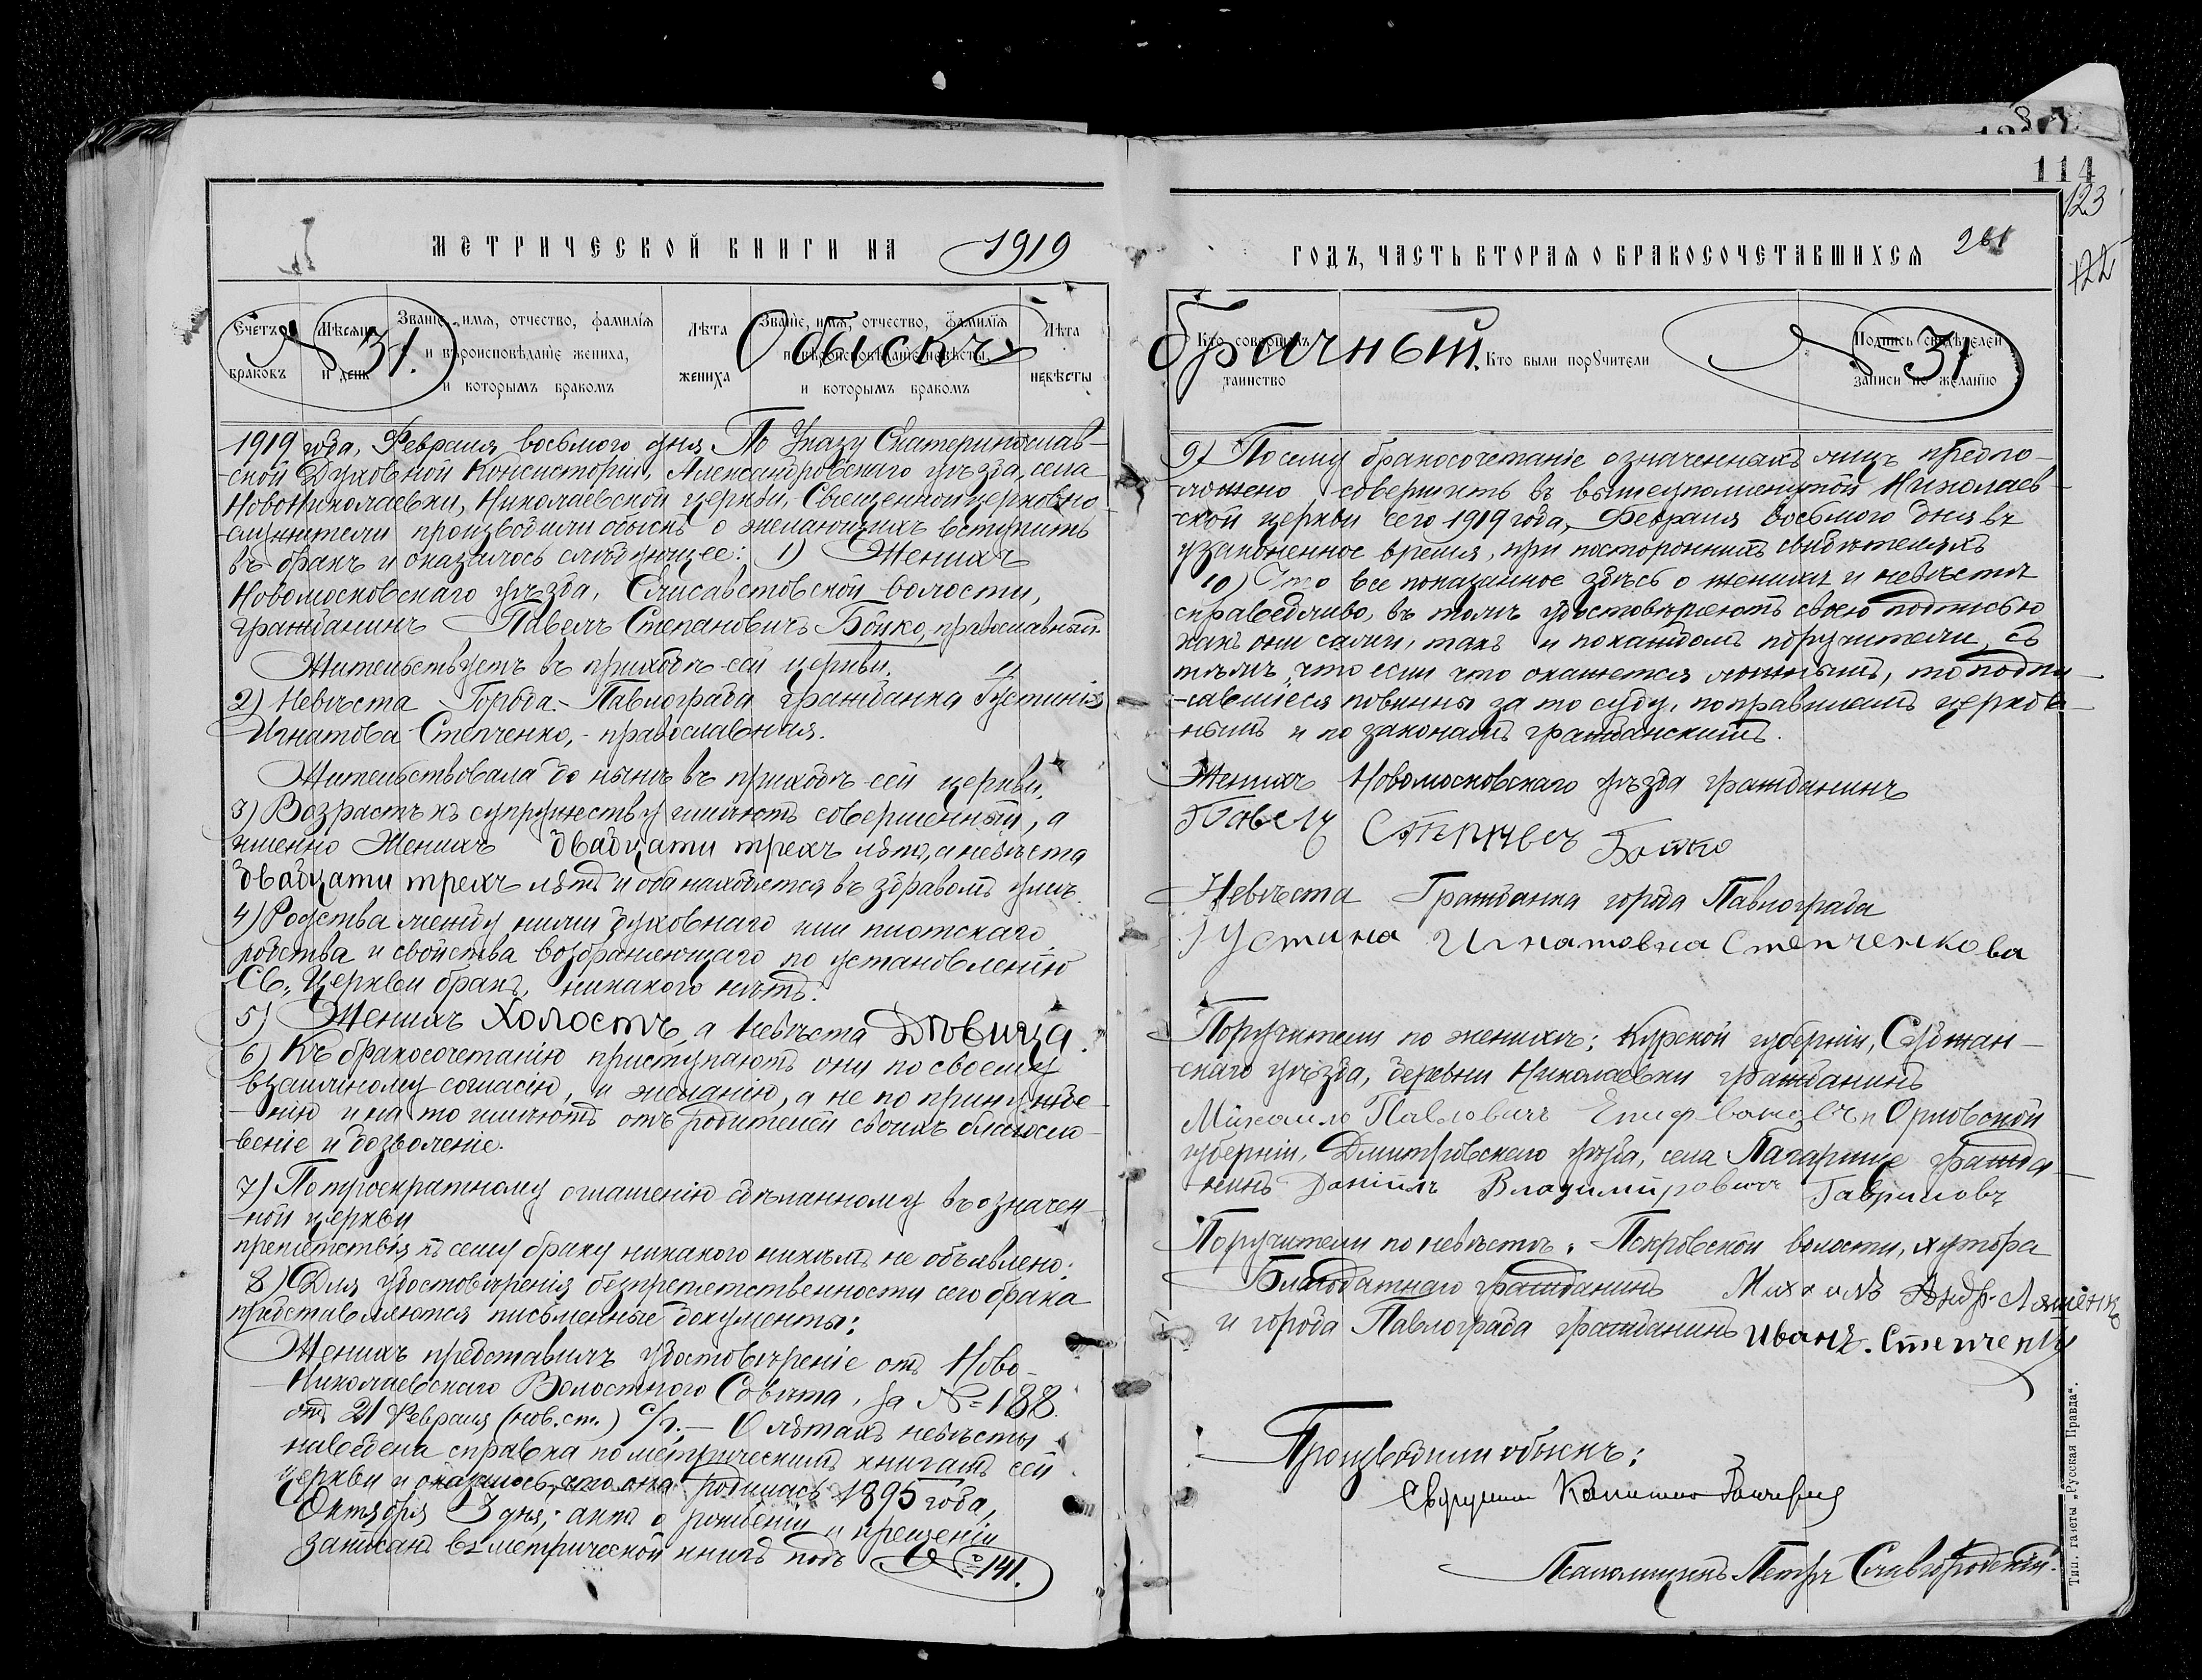 МЕТРИЧЕСКОЙ КНИГИ НА 1919
Счетъ браковъ
Мѣсяцъ и день
Званіе, имя, отчество, фамилія и вѣроисповѣданіе жениха, и которымъ бракомъ
Лѣта жениха
Званіе, имя, отчество, фамилія и вѣроисповѣданіе невѣсты, и которымъ бракомъ
Лѣта невѣсты
№ 31.
Обыскъ
1919 года, Февраля восьмого дня. По Указу Екатеринослав-
-ской Духовной Консисторіи, Александровскаго уѣзда, села
НовоНиколаевки, Николаевской церкви, Священноицерковно-
-служители производили обыскъ о желающихъ вступить
въ бракъ и оказалось слѣдующее: 1) Женихъ
Новомосковскаго уѣзда, Елисаветовской волости,
гражданинъ Павелъ Степановичъ Бойко, православный.
Жительствуетъ въ приходѣ сей церкви.
2) Невѣста Города Павлограда гражданка Іустинія
Игнатова Степченко, - православная.
Жительствовала до нынѣ въ приходѣ сей церкви.
3) Возрастъ къ супружеству имѣютъ совершенный, а
именно Женихъ двадцати трехъ лѣтъ, а невѣста
двадцати трехъ лѣтъ и оба находятся въ здравомъ умѣ.
4) Родства между ними духовнаго или плотскаго
родства и свойства возбраняющаго по установленію
Св. Церкви бракъ, никакого нѣтъ.
5) Женихъ Холостъ, а Невѣста Дѣвица.
6) Къ бракосочетанію приступаютъ они по своему
взаимному согласію, и желанію, а не по принужде-
-нію и на то имѣютъ отъ родителей своихъ благосло-
-веніе и дозволеніе.
7) По троекратному оглашенію сдѣланному въ означен-
-ной церкви
препятствія къ сему браку никакого никѣмъ не объявлено.
8) Для удостовѣренія безпрепятственности сего брака
представляются письменные документы:
Женихъ представилъ удостовѣреніе отъ Ново-
-Николаевскаго Волостного Совѣта, за № 188.
отъ 21 Февраля (нов. ст.) с/г. — О лѣтахъ невѣсты
наведена справка по метрическимъ книгамъ сей
церкви и оказалось, что она родилась 1895 года,
Октября 3 дня; актъ о рожденіи и крещеніи
записанъ въ метрической книгѣ подъ № 141.
114
123
122
ГОДЪ, ЧАСТЬ ВТОРАЯ О БРАКОСОЧЕТАВШИХСЯ
Кто совершалъ таинство
Кто были поручители
Подпись свидѣтелей записи по желанію
брачный.
№ 31
9) Посему бракосочетаніе означенныхъ лицъ предпо-
-ложено совершить въ вышеупомянутой Николаев-
-ской церкви сего 1919 года, Февраля восьмого дня въ
узаконенное время, при постороннихъ свидѣтеляхъ
10) Что все показанное здѣсь о женихѣ и невѣстѣ
справедливо, въ томъ удостовѣряютъ своею подписью
какъ они сами, такъ и по каждомъ поручители, съ
тѣмъ, что если что окажется ложнымъ, то подпи-
-савшіеся повинны за то суду, по правиламъ церков-
-нымъ и по законамъ гражданскимъ.
Женихъ Новомосковскаго уѣзда гражданинъ
Павелъ Бойко
Невѣста Гражданка города Павлограда
Іустина Игнатовна Степченкова
Поручители по женихѣ: Курской губерніи, Суджан-
-скаго уѣзда, деревни Николаевки гражданинъ
Михаилъ Павловичъ и Орловской
губерніи, Дмитровскаго уѣзда, села гражда-
-нинъ Даніилъ Владиміровичъ Гавриловъ
Поручители по невѣстѣ: Покровской волости, хутора
Благодатнаго гражданинъ Михаилъ Андр. Ляшенко
и города Павлограда гражданинъ Иванъ. Степченко
Производили обыскъ:
Псаломщикъ Петръ Славгородскій.
Тип. газеты „Русская Правда“.